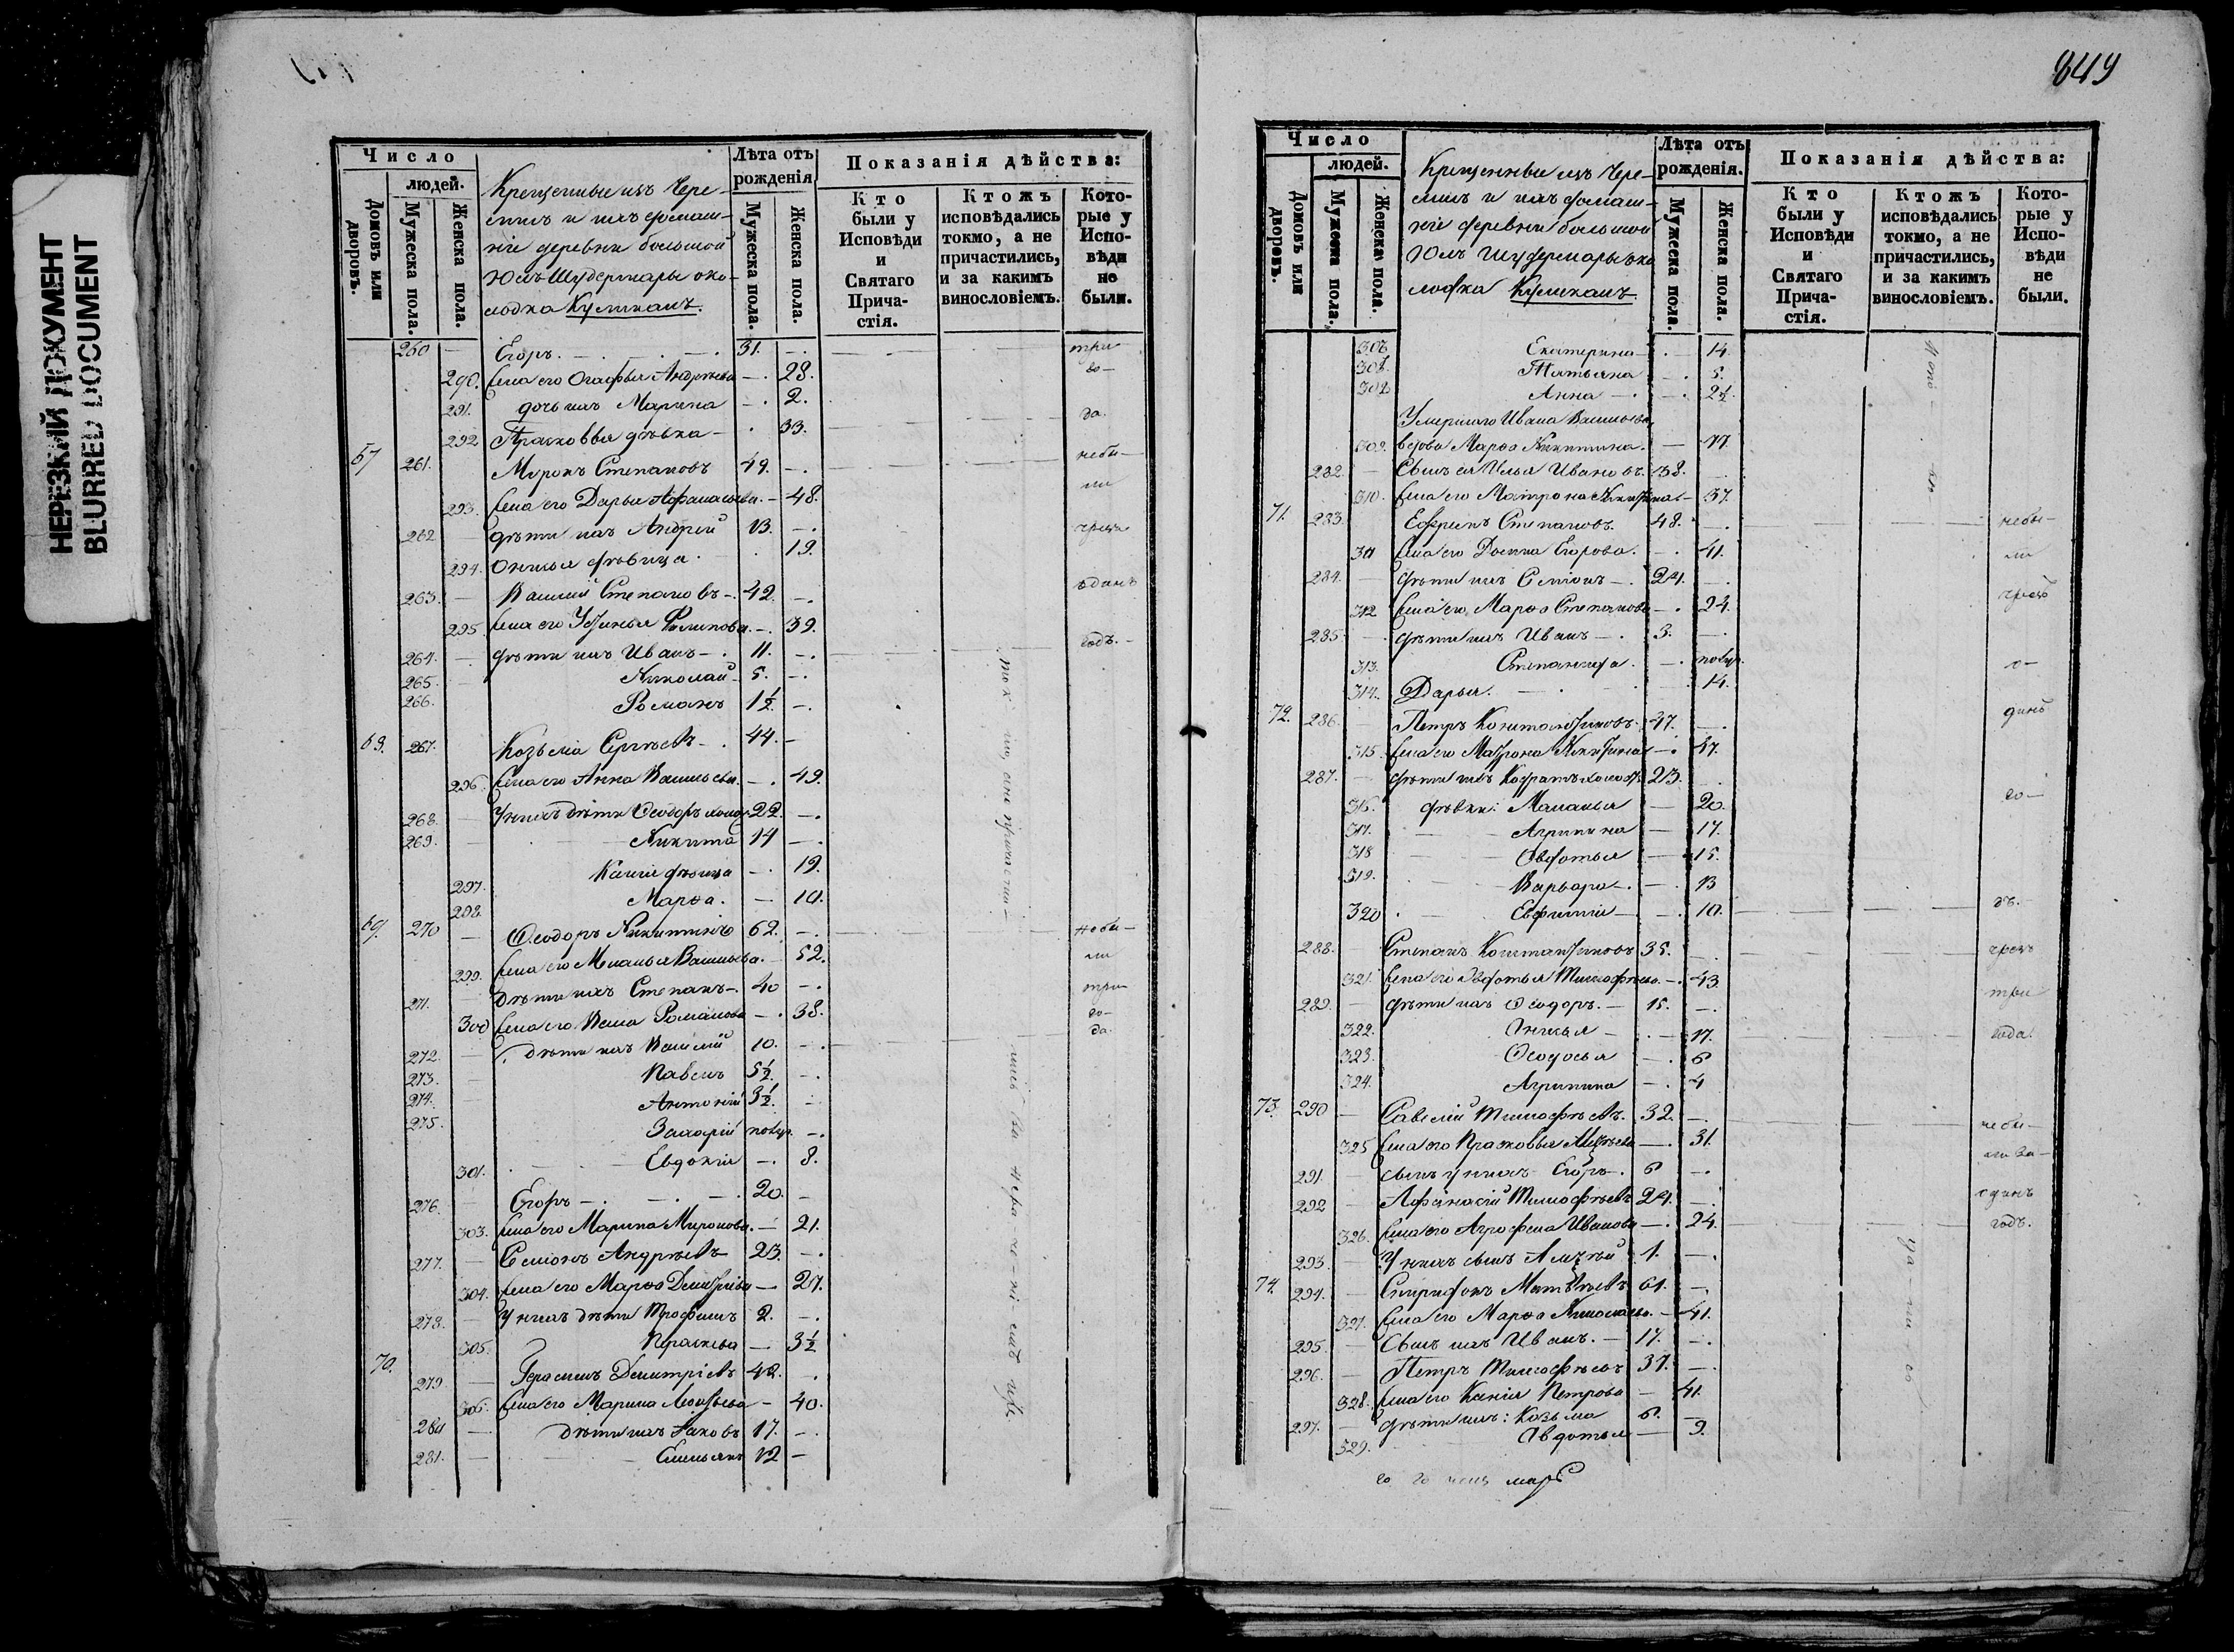 НЕРЕЗКИЙ ДОКУМЕНТ
BLURRED DOCUMENT
Число
людей.
Домовъ или дворовъ.
Мужеска пола.
Женска пола.
Крещенные изъ Чере-
мисъ и ихъ домаш-
ніе деревни большой
Юлъ Шудермары око-
лодка Кулиkалъ.
Лѣта отъ рожденія
Мужеска пола.
Женска пола.
Показанія дѣйства:
Кто были у Исповѣди и Святаго Прича-стія.
Ктожъ исповѣдались токмо, а не причастились, и за какимъ винословіемъ.
Кото-рые у Испо-вѣди не были.
260 — Егоръ. — 31. — три
290. Жена его Огафья Андрѣева — 28. го—
291. дочь ихъ Марина — 2.
да.
292 Прасковья дѣвка — 33.
67 261. Миронъ Степановъ 49. — небы—
293. Жена его Дарья Афанасьева. — 48. ли
262 — дѣти ихъ Андрей 13. — чрезъ
294. Онисья дѣвица. 19.
263. — Василій Степановъ — 42. — одинъ
295. Жена его Устинья Филипова. — 39.
264. — дѣти ихъ Иванъ — 11. — годъ.
265. — Николай — 5. —
266. Романъ 1½ —
68. 267. Козьма Сергѣевъ — 44. —
296. Жена его Анна Васильева. — 49.
268. — У нихъ дѣти Ѳеодоръ холос. 22. —
269. — Никита 14 —
297. дѣвица — 19.
298. Марѳа. — 10.
69. 270 — Ѳеодоръ Никитинъ 62. — небы—
299. Жена его Меланья Васильева. — 52. ли
271. — Дѣти ихъ Степанъ — 40 — три
300 Жена его Романова — 38. го—
да.
272. — дѣти ихъ Василій 10. —
273. — Павелъ 5½ —
274. — Антоній 3½ —
275. Захарій полур. —
301. Евдокія — 8.
276. — Егоръ — 20. —
303. Жена его Марина Миронова. — 21.
277. — Семенъ Андрѣевъ — 23 —
304. Жена его Марѳа Дмитріева — 27.
278. — У нихъ дѣти Трофимъ 2. —
305. Праскева — 3½
70. 279. — Герасимъ Димитріевъ 42. —
306. Жена его Марина Леонтьева — 40.
280 — дѣти ихъ Іаковъ 17. —
281. — Емельянъ 12 —
849
Число
людей.
Домовъ или дворовъ.
Мужеска пола.
Женска пола.
Крещенные изъ Чере-
мисъ и ихъ домаш-
ніе деревни большой
Юлъ Шудермары око-
лодка Кулиkалъ
Лѣта отъ рожденія.
Мужеска пола.
Женска пола.
Показанія дѣйства:
Кто были у Исповѣди и Святаго Прича-стія.
Ктожъ исповѣдались токмо, а не причастились, и за какимъ винословіемъ.
Кото-рые у Испо-вѣди не были.
Екатерина — 14.
Татьяна — 5.
Анна — 2½.
Умершаго Ивана Васильева
309. вдова Марѳа Никитина. — 77
282. — Сынъ ея Илья Ивановъ. 38.
310. Жена его Матрона Никитина — 37.
71. 283. Ефремъ Степановъ. 48. — небы—
311 Жена его Домна Егорова. — 41. ли
284. — дѣти ихъ Семенъ — 24. —
312 Жена его Марѳа Степанова — 24. чрезъ
285. — дѣти ихъ Иванъ — 3. —
313. Степанида. — полур. о—
314. Дарья. — 14.
72. 286. — Петръ Константиновъ. 47. — динъ
315. Жена его Матрона Никитина — 47.
287. — дѣти ихъ холост. 23.
316. дѣвки: Маланья — 20. го—
317. — Агрипина — 17.
318 — Овдотья — 15.
319. — Варвара — 13
320 — Евфимія — 10. дъ.
288. — Степанъ Константиновъ 35. — чрезъ
321. Жена его Овдотья Тимофѣева. — 43.
289. — дѣти ихъ Ѳеодоръ. — 15. — три
322. Онисья — 17. года.
323. Ѳеодосья — 6
324. Агрипина — 4
73. 290 — Савелій Тимофѣевъ. 32. — небы—
325 Жена его Прасковья — 31.
291. — сынъ у нихъ Егоръ — 6 —
292 — Афанасій Тимофѣевъ 24. — одинъ
326. Жена его Агрофена Иванова — 24. годъ.
293. — У нихъ сынъ Алексѣй 1. —
74. 294. — Спиридонъ Матвѣевъ 61. —
327. Жена его Марѳа Николаева. — 41.
295. — Сынъ ихъ Иванъ. — 17. —
296. — Петръ Тимофѣевъ 37. —
328. Жена его Ксенія Петрова — 41.
297. — дѣти ихъ: Козьма 6. —
329. Овдотья — 9.